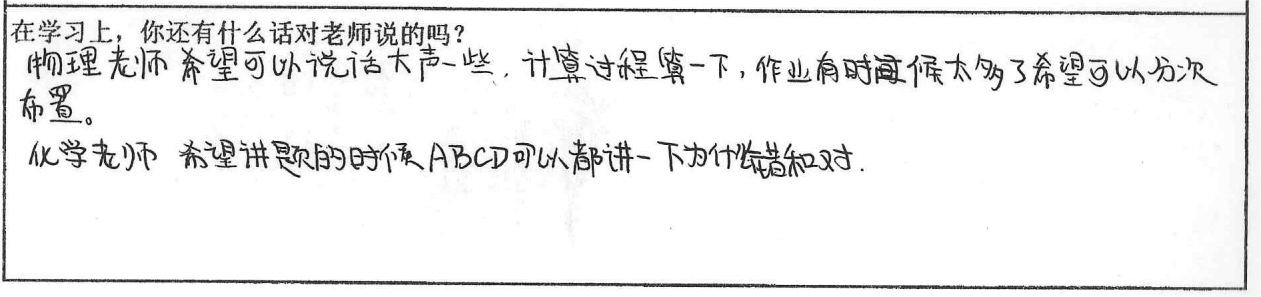 在学习上，你还有什么话对老师说的吗？
物理老师 希望可以说话大声一些，计算过程算一下，作业有时候太多了希望可以分次
布置。
化学老师 希望讲题的时候ABCD可以都讲一下为什么错和对.